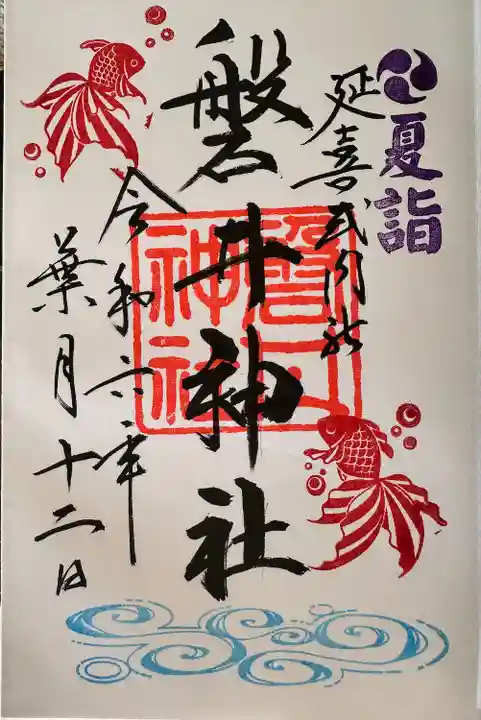 夏詣
延喜式内社
磐井神社
令和六年
葉月十二日